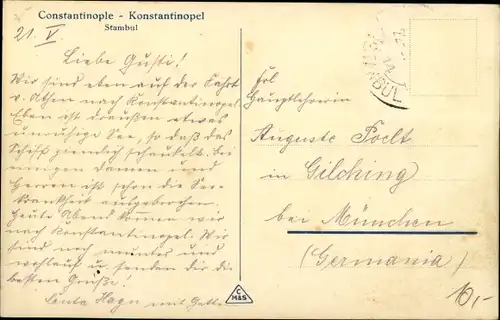 Constantinople - Konstantinopel
Stambul
21. V.
Liebe Gusti!
Wir sind eben auf der Fahrt
v. Athen nach Konstantinopel.
Eben ist draußen etwas
unruhige See, so daß das
Schiff ziemlich schaukelt. Bei
einigen Damen und
Herren ist schon die See-
krankheit ausgebrochen.
Heute Abend kommen wir
nach Konstantinopel. Wir
sind noch munter und
wohlauf u. senden dir die
besten Grüße!
Hagn mit
Frl
Hauptlehrerin
Auguste
in Gilching
bei München
(Germania)
C
M&S
10,-